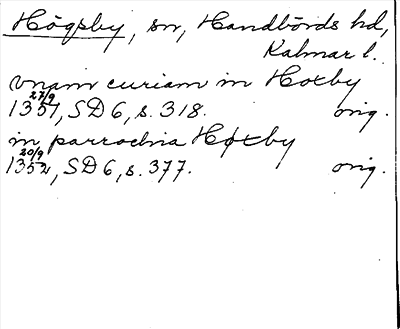 Högsby, sn, Handbörds hd,
Kalmar l.
vnam curiam in Hoxby
27/9
1351, SD 6, s. 318. orig.
in parrochia Høxby
20/9
1352, SD 6, s. 377. orig.